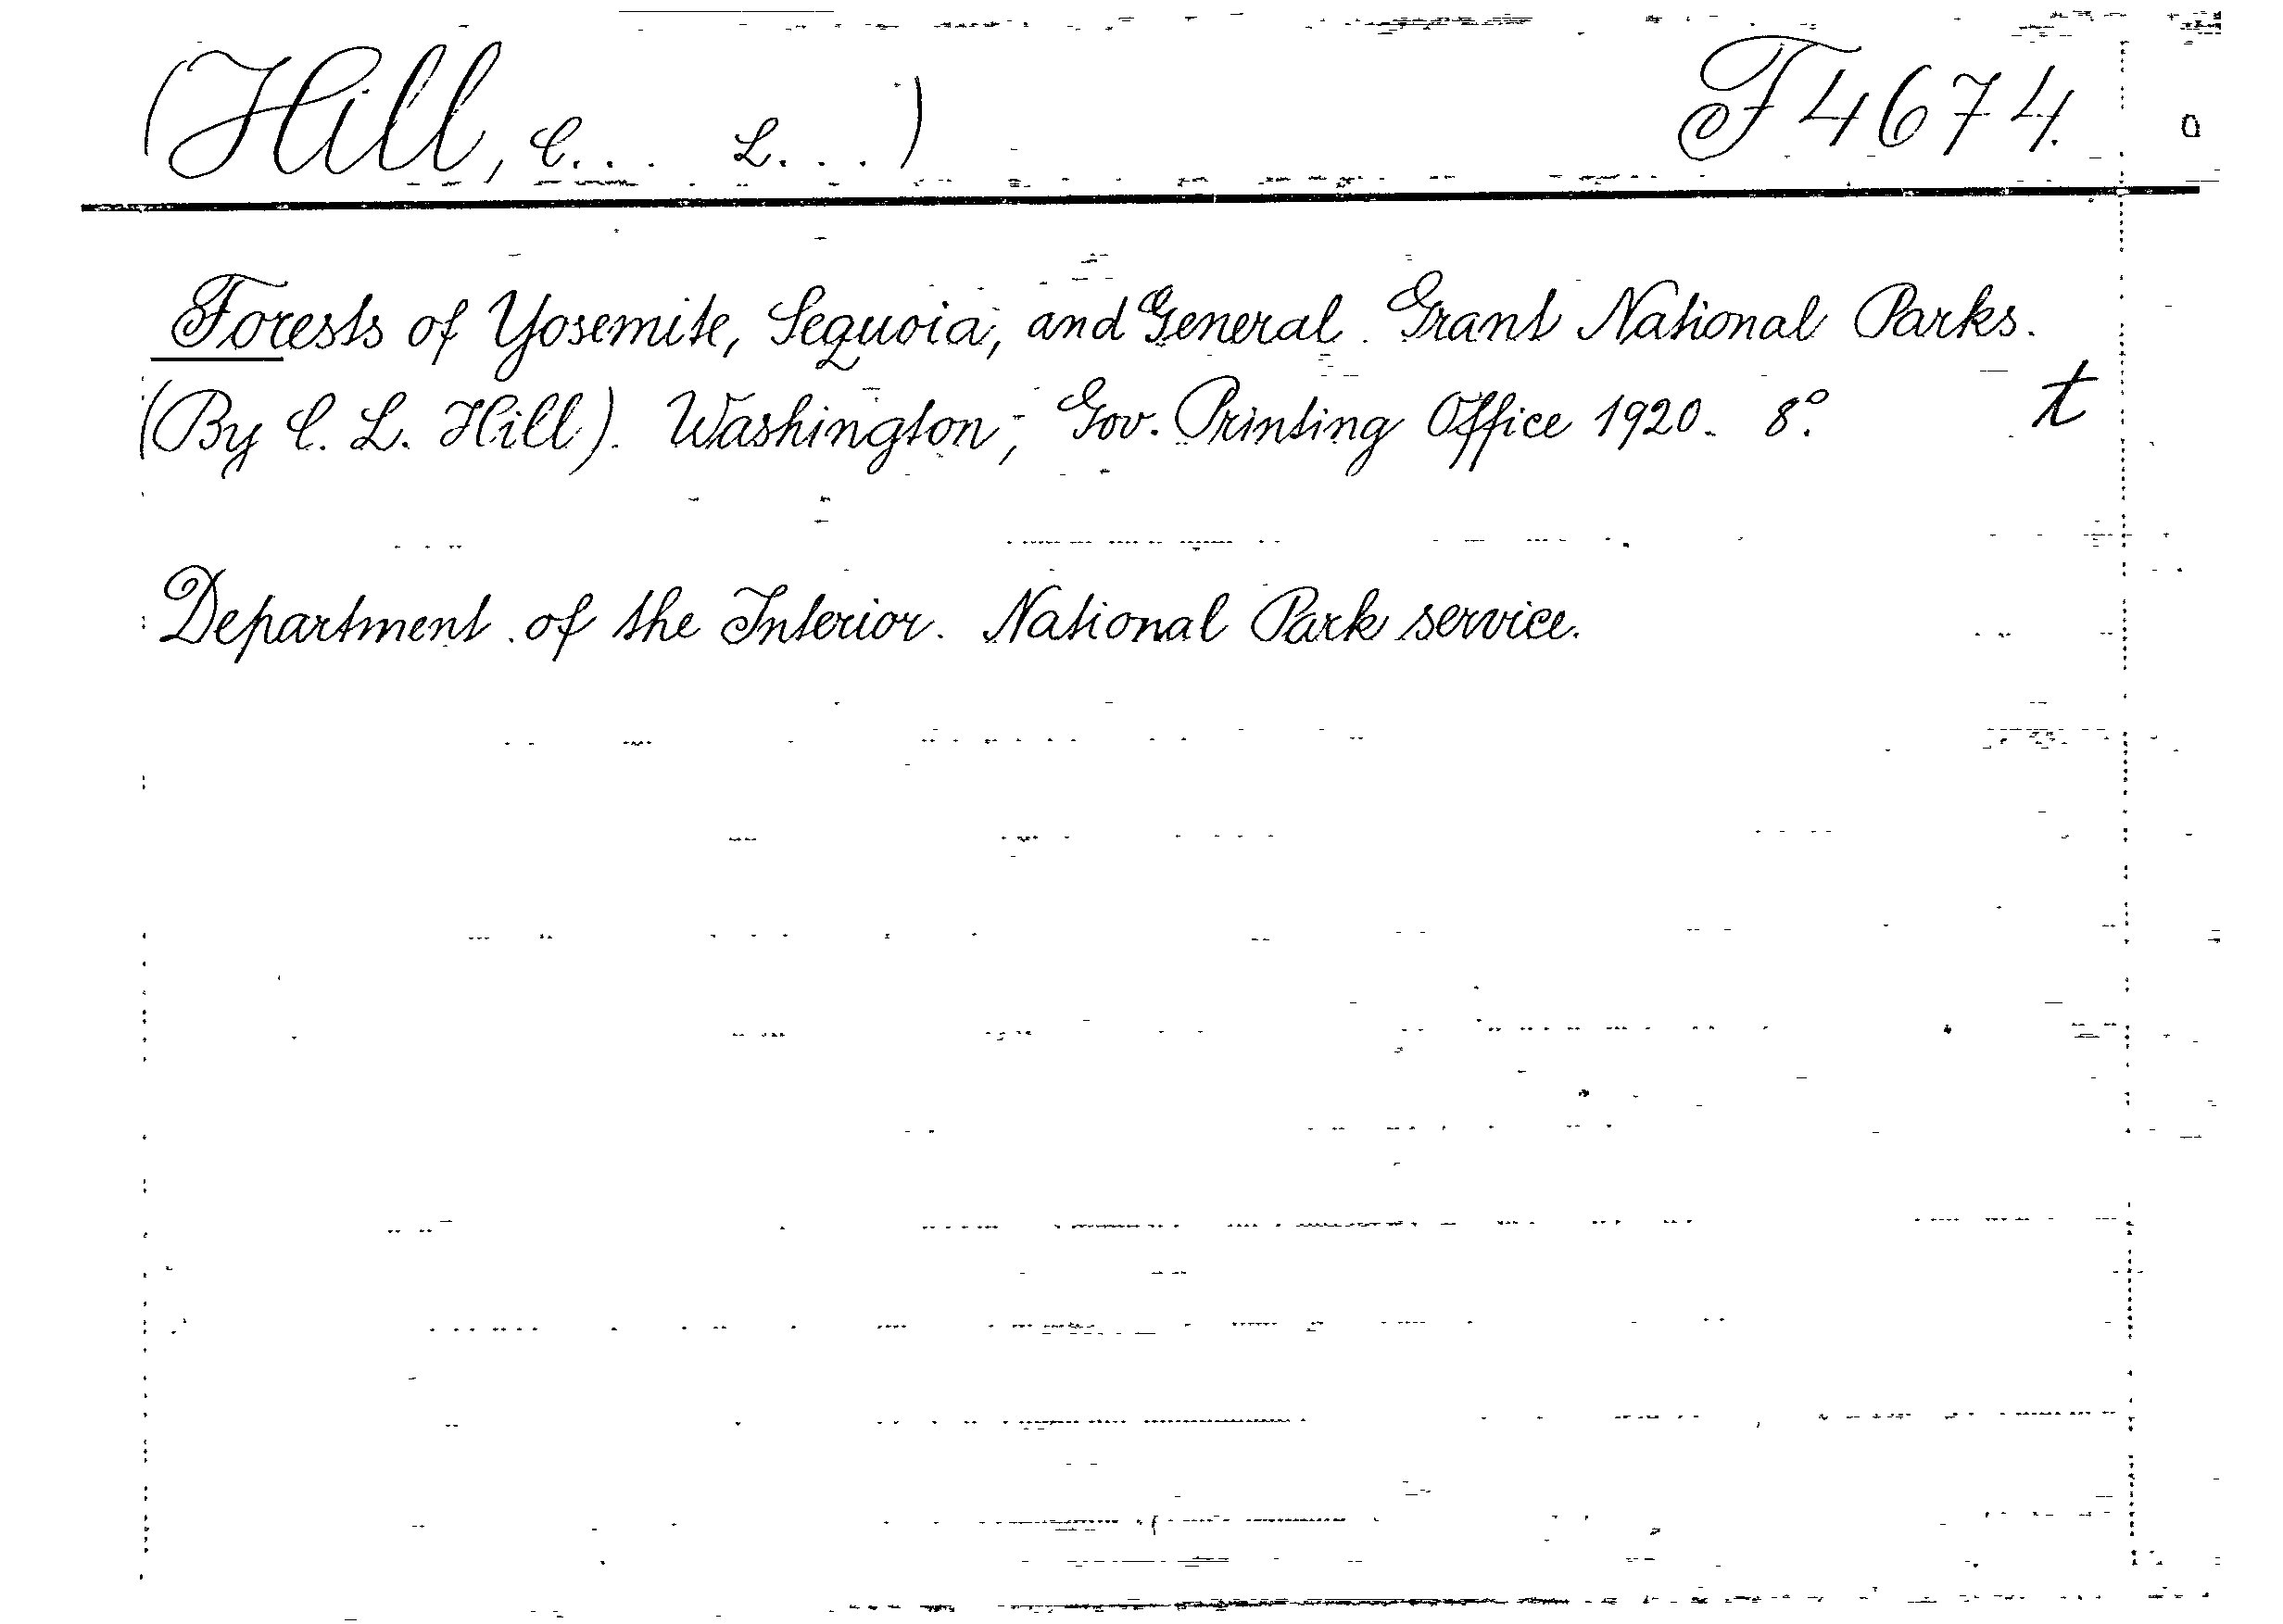 (Hill, C... L...) F 4674.
Forests of Yosemite, Sequoia, and General Grant National Parks.
(By C. L. Hill). Washington, Gov. Printing Office 1920. 8°. t
Department of the Interior. National Park service.